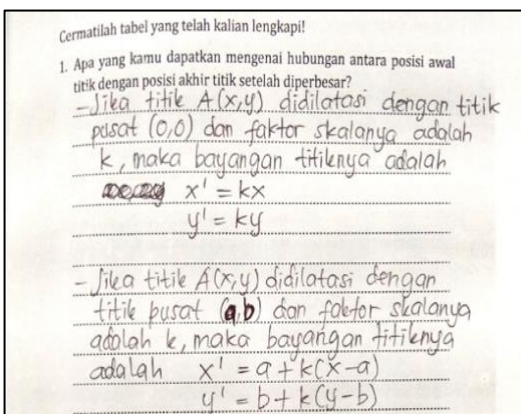 Cermatilah tabel yang telah kalian lengkapi!
1. Apa yang kamu dapatkan mengenai hubungan antara posisi awal
titik dengan posisi akhir titik setelah diperbesar?
- Jika titik A(x,y) didilatasi dengan titik
pusat (0,0) dan faktor skalanya adalah
k, maka bayangan titiknya adalah
x' = kx
y' = ky
- Jika titik A(x,y) didilatasi dengan
titik pusat (a,b) dan faktor skalanya
adalah k, maka bayangan titiknya
adalah x' = a + k(x-a)
y' = b + k(y-b)